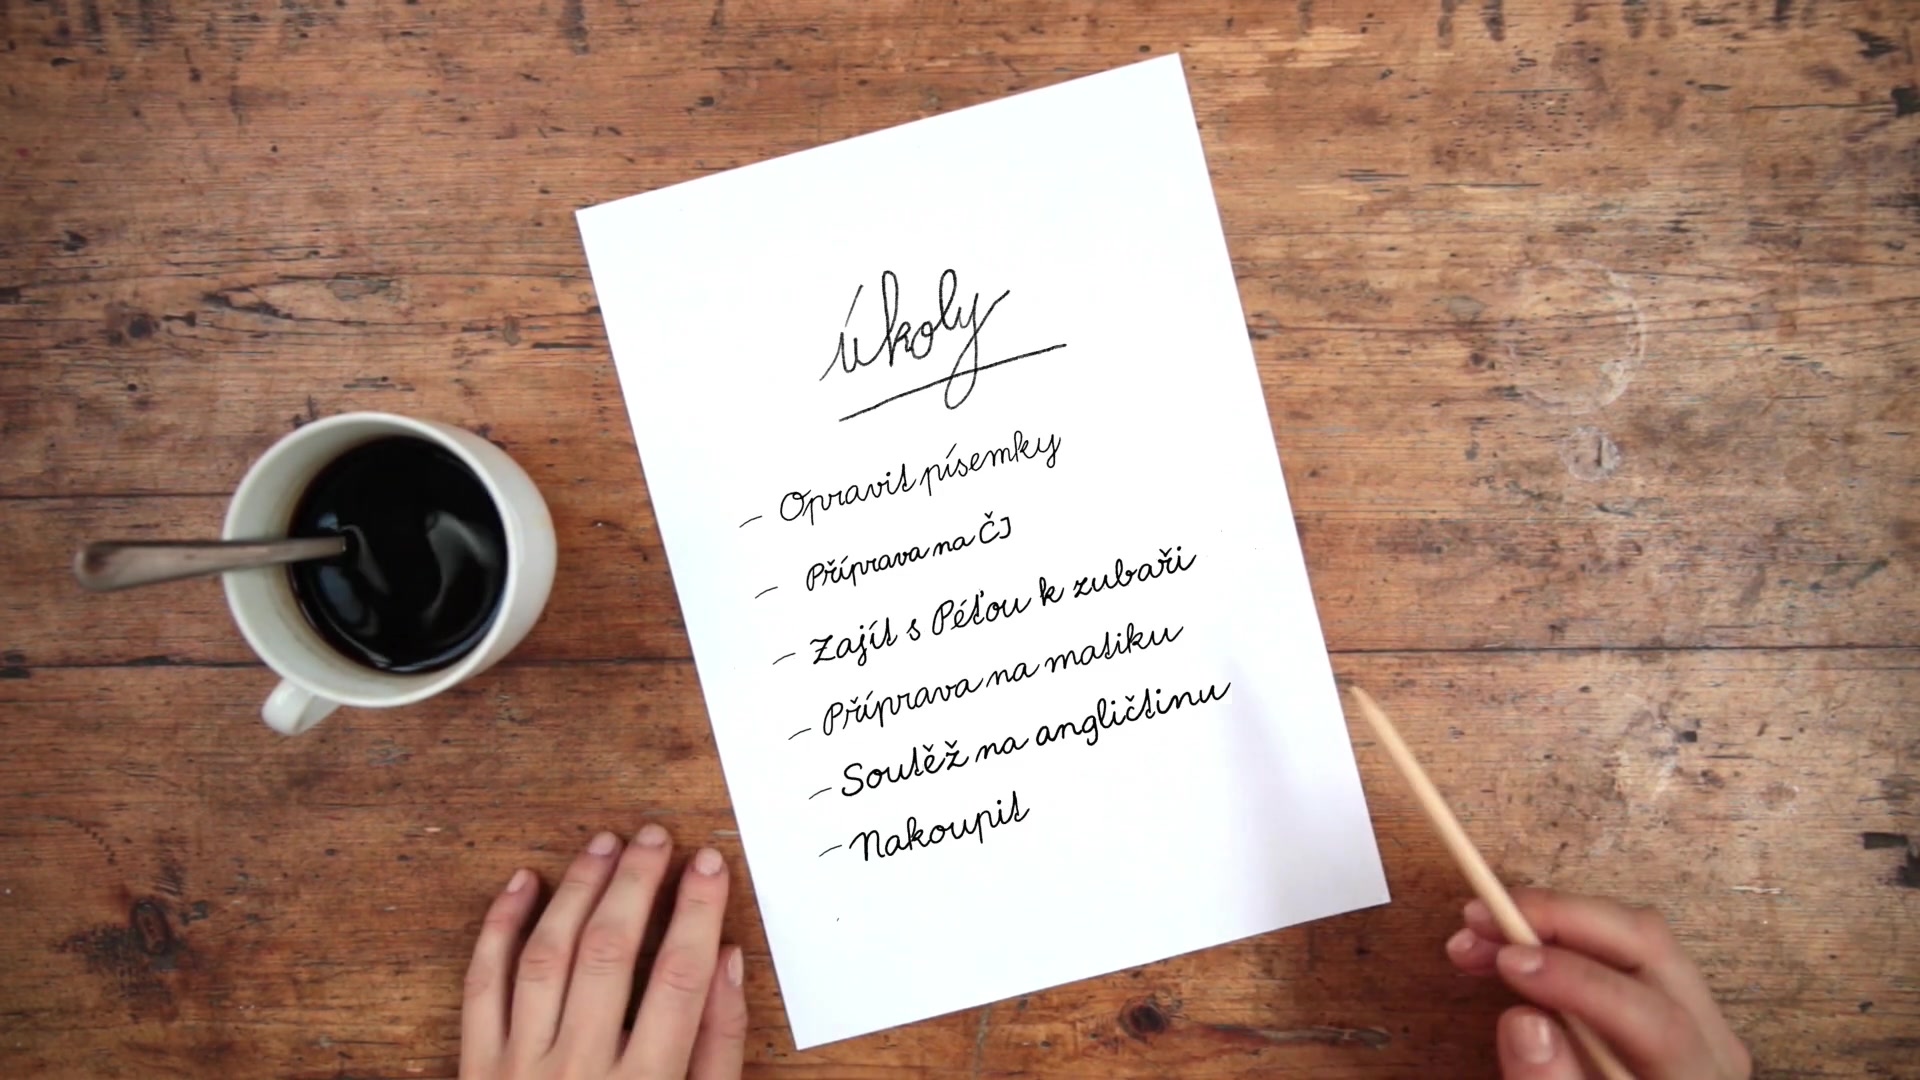 úkoly
- Opravit písemky
- Příprava na ČJ
- Zajít s Péťou k zubaři
- Příprava na matiku
- Soutěž na angličtinu
- Nakoupit